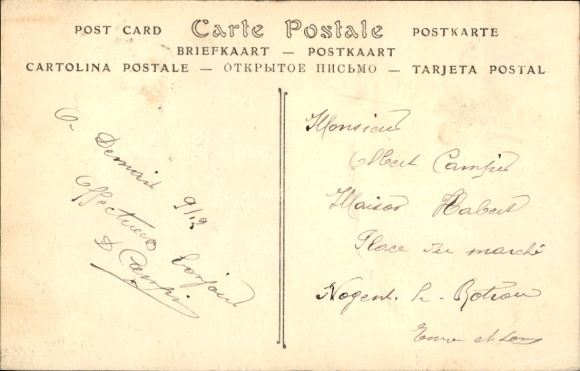 POST CARD Carte Postale POSTKARTE
BRIEFKAART — POSTKAART
CARTOLINA POSTALE — ОТКРЫТОЕ ПИСЬМО — TARJETA POSTAL
Demain
9/19
Affectueux bonjour
D Campin
Monsieur
Albert Campin
Maison Habert
Place du marché
Nogent. le. Rotrou
Eure et Loir